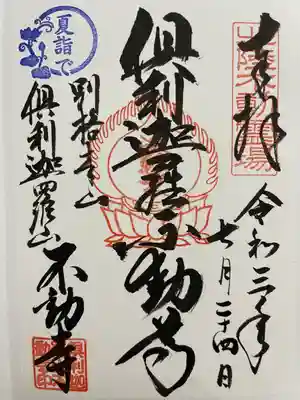 奉拝
令和三年
七月二十四日
倶利迦羅不動尊
別格本山
倶利迦羅山
不動寺
夏詣で